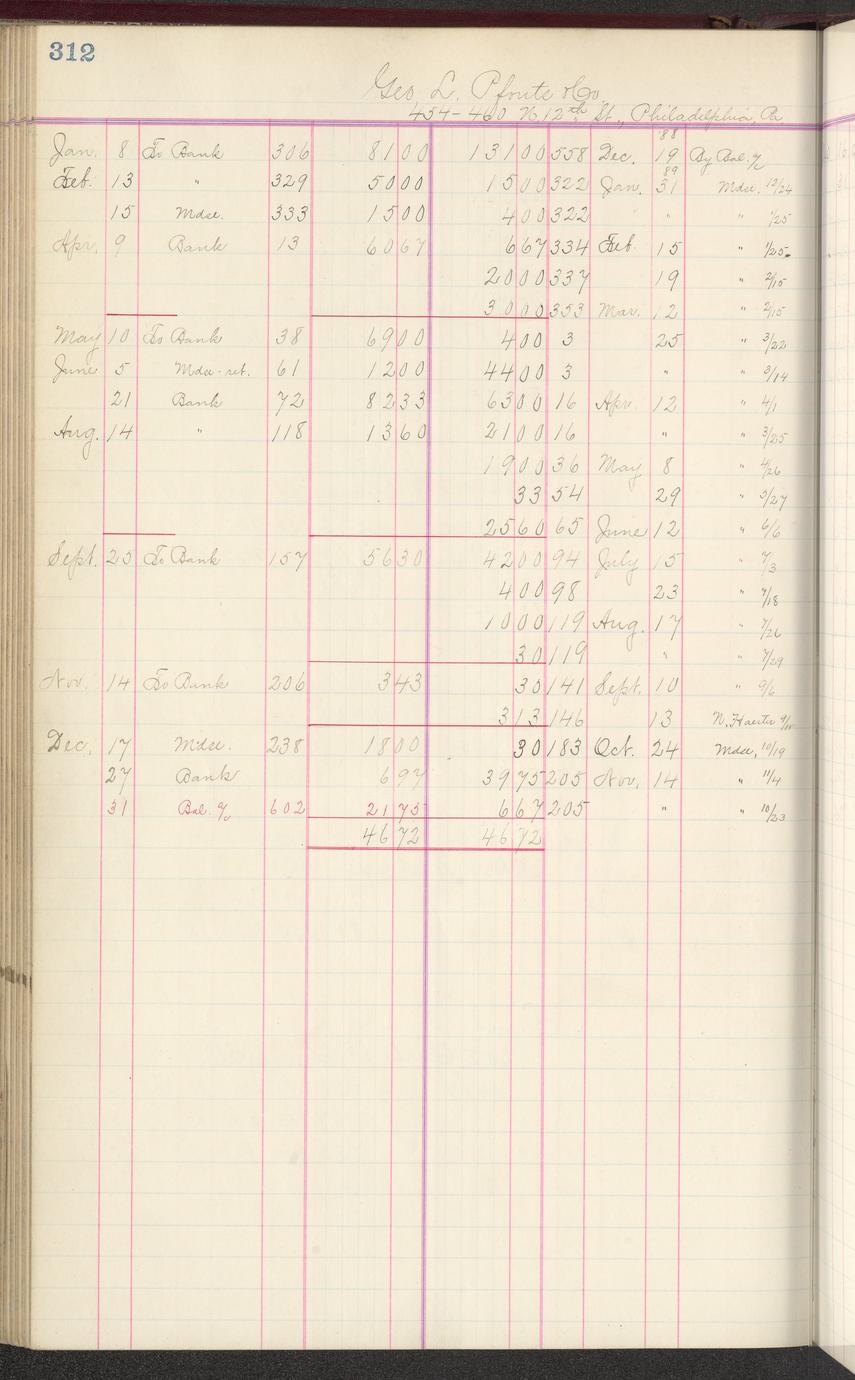 312
Geo. L. Pfoutz & Co
454-460 N. 12th St., Philadelphia, Pa
'88
Jan. 8 To Bank 306 8100 13100 558 Dec. 19 By Bal. %
89
Feb. 13 " 329 5000 1500 322 Jan. 31 Mdse. 12/24
15 Mdse. 333 1500 400 322 " " 1/25
Apr. 9 Bank 13 6067 667 334 Feb. 15 " 1/25
2000 337 19 " 2/15
3000 353 Mar. 12 " 2/15
May 10 To Bank 38 6900 400 3 25 " 3/22
June 5 Mdse-ret. 61 1200 4400 3 " " 3/14
21 Bank 72 8233 6300 16 Apr. 12 " 4/1
Aug. 14 " 118 1360 2100 16 " " 3/25
1900 36 May 8 " 4/26
33 54 29 " 5/27
2560 65 June 12 " 6/6
Sept. 25 To Bank 157 5630 4200 94 July 15 " 7/3
400 98 23 " 7/18
1000 119 Aug. 17 " 7/26
30 119 " " 7/29
Nov. 14 To Bank 206 343 30 141 Sept. 10 " 9/6
313 146 13 N.
Dec. 17 Mdse. 238 1800 30 183 Oct. 24 Mdse, 10/19
27 Bank 697 3975 205 Nov. 14 " 11/4
31 Bal. % 602 2175 667 205 " " 10/23
4672 4672